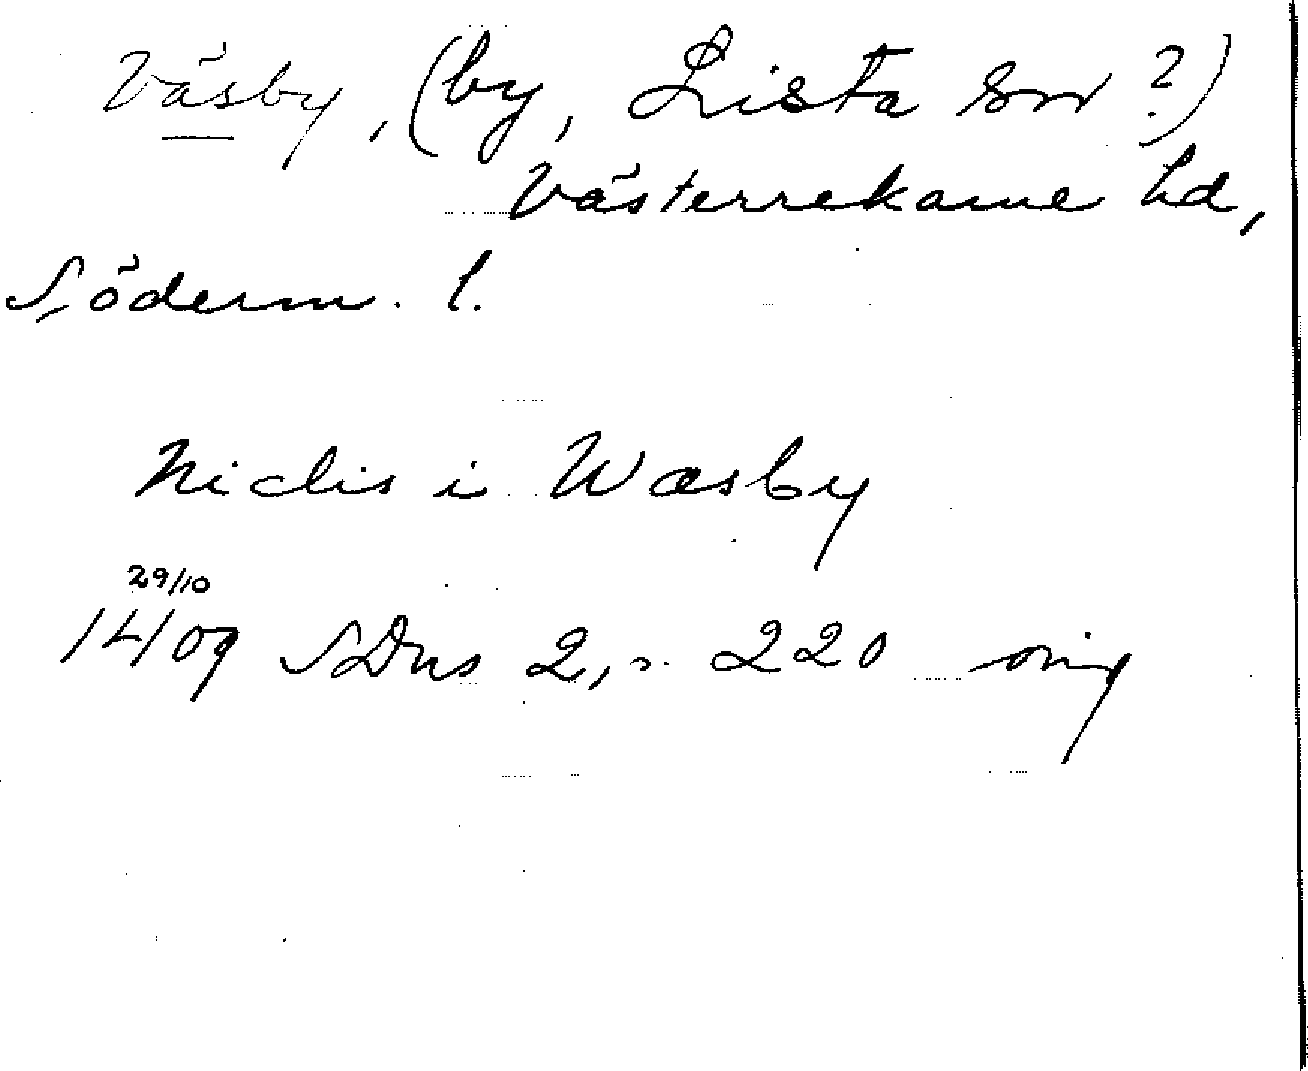 Väsby, (by, Lista sn ?)
Västerrekarne hd,
Söderm. l.
Niclis i Wæsby
29/10
1409 SDns 2, s. 220 orig